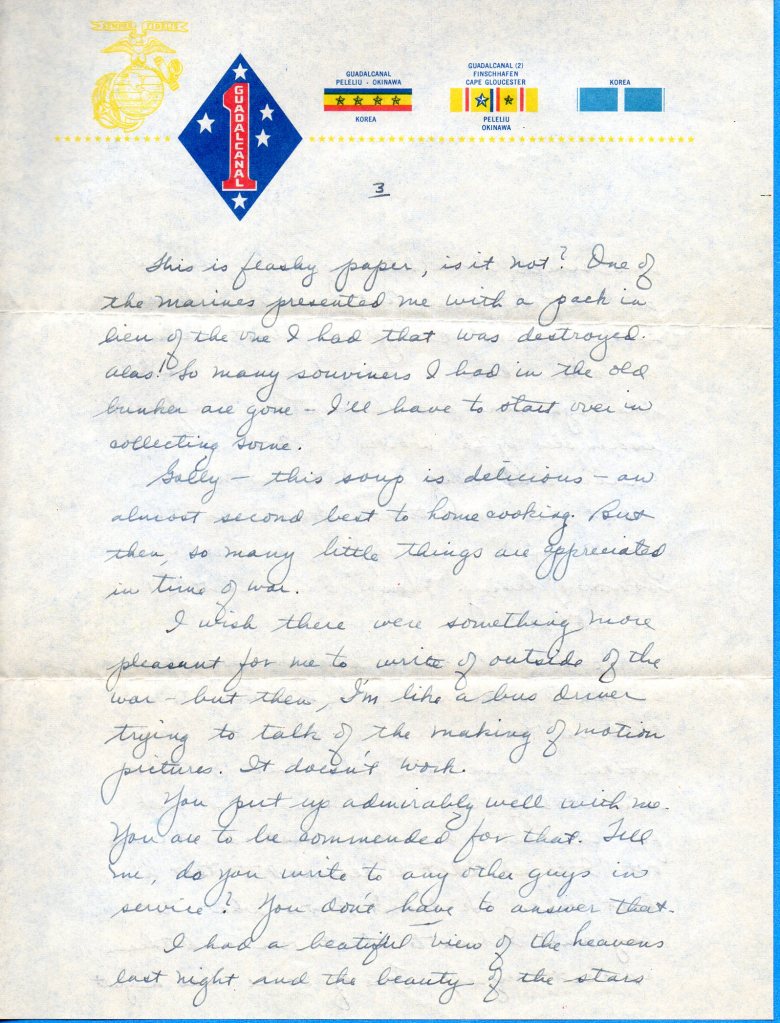 SEMPER FIDELIS
GUADALCANAL
1
GUADALCANAL
PELELIU - OKINAWA
KOREA
GUADALCANAL (2)
FINSCHHAFEN
CAPE GLOUCESTER
PELELIU
OKINAWA
KOREA
3
This is flashy paper, is it not? One of
the marines presented me with a pack in
lieu of the one I had that was destroyed.
alas! So many souviners I had in the old
bunker are gone - I'll have to start over in
collecting some.
Golly - this soup is delicious - an
almost second best to home cooking. But
then, so many little things are appreciated
in time of war.
I wish there were something more
pleasant for me to write of outside of the
war - but then, I'm like a bus driver
trying to talk of the making of motion
pictures. It doesn't work.
You put up admirably well with me.
You are to be commended for that. Tell
me, do you write to any other guys in
service? You don't have to answer that.
I had a beatiful view of the heavens
last night and the beauty of the stars